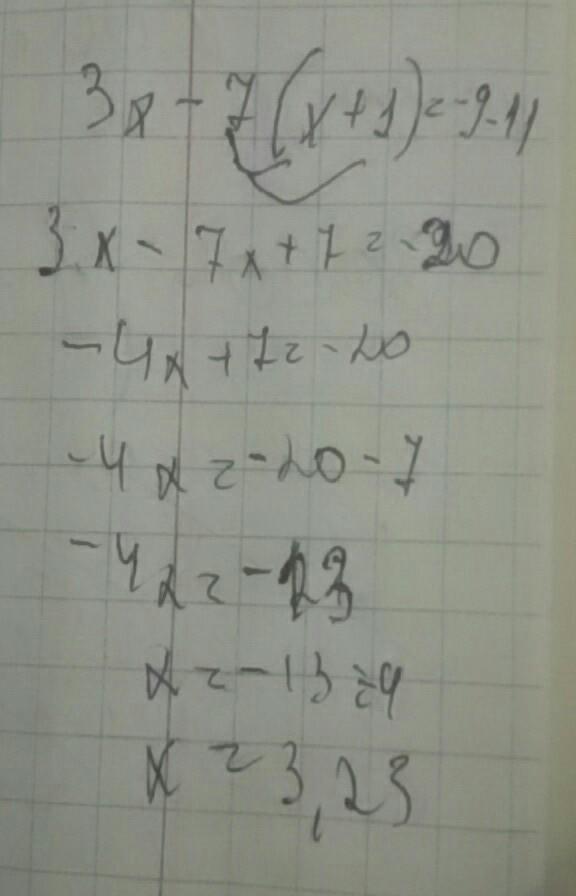 3x - 7(x+1) = -9-11
3x - 7x + 7 = -20
-4x + 7 = -20
-4x = -20 - 7
-4x = -13
x = -13 ÷ 4
x = 3,23